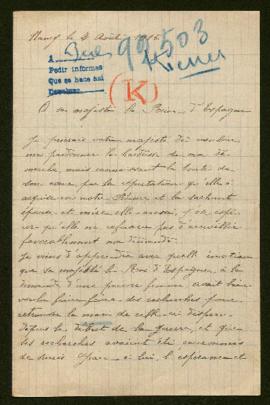 Nancy le 4 Août 1915.
99503
A
Pedir informes
Que se hace aquí
Devolver
(K)
A sa majesté la Reine d'Espagne
Je prierais votre majesté de vouloir
me pardonner la hardiesse de ma
mais connaissant la bonté de
son cœur, par la réputation qu'elle a
acquise en notre et la sachant
épouse et mère elle aussi, j'ose espé-
rer qu'elle ne refusera pas d'accueillir
favorablement ma demande.
Je viens d'apprendre avec quelle émotion
que sa majesté le Roi d'Espagne, à la
demande d'une pauvre femme, avait bien
voulu faire faire des recherches pour
retrouver le mari de celle-ci disparu
depuis le début de la guerre, et que
les recherches avaient été couronnées
de succès Grâce à lui, l'espérance et